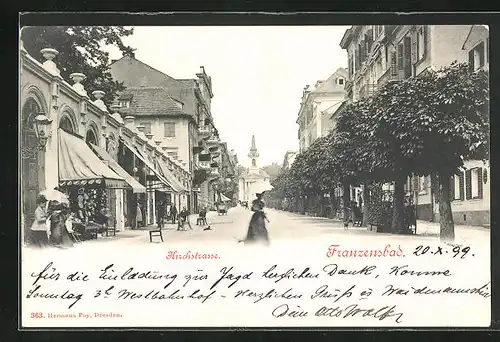 Kirchstrasse.
Franzensbad.
20.X.99.
für die Einladung zur Jagd herzlichen Dank, Komme
Sonntag 3h Westbahnhof - Herzlichen Gruss u Waidmannsheil
Dein Otto Wolf
363. Hermann Poy, Dresden.